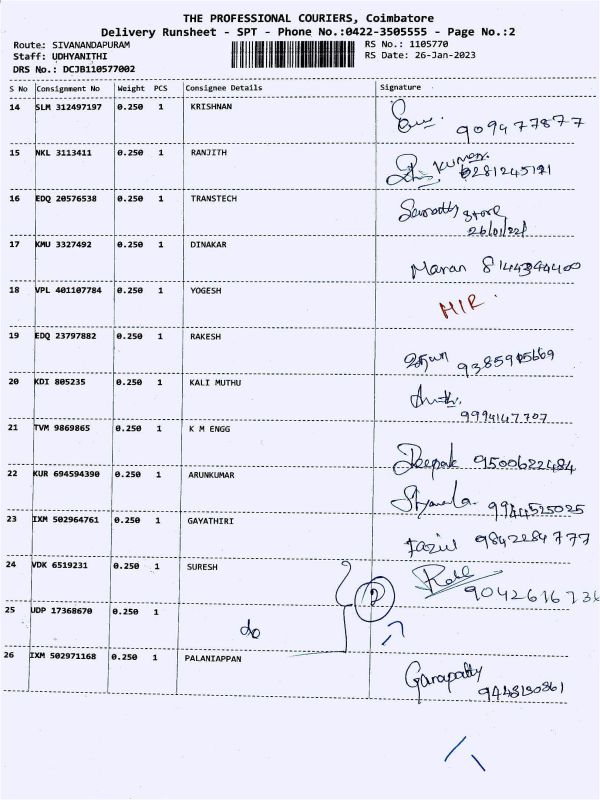 THE PROFESSIONAL COURIERS, Coimbatore
Delivery Runsheet - SPT - Phone No.:0422-3505555 - Page No.:2
Route: SIVANANDAPURAM RS No.: 1105770
Staff: UDHYANITHI RS Date: 26-Jan-2023
DRS No.: DCJB110577002
S No Consignment No Weight PCS Consignee Details Signature
14 SLM 312497197 0.250 1 KRISHNAN
909477877
15 NKL 3113411 0.250 1 RANJITH Kumar.
16 EDQ 20576538 0.250 1 TRANSTECH Store
17 KMU 3327492 0.250 1 DINAKAR Maran
18 VPL 401107784 0.250 1 YOGESH MIR.
19 EDQ 23797882 0.250 1 RAKESH
20 KDI 805235 0.250 1 KALI MUTHU
9994147707
21 TVM 9869865 0.250 1 K M ENGG
Deepak 9500622484
22 KUR 694594390 0.250 1 ARUNKUMAR
9944525025
23 IXM 502964761 0.250 1 GAYATHIRI
9842284777
24 VDK 6519231 0.250 1 SURESH
9042616736
25 UDP 17368670 0.250 1
do 2
26 IXM 502971168 0.250 1 PALANIAPPAN
Ganapathy